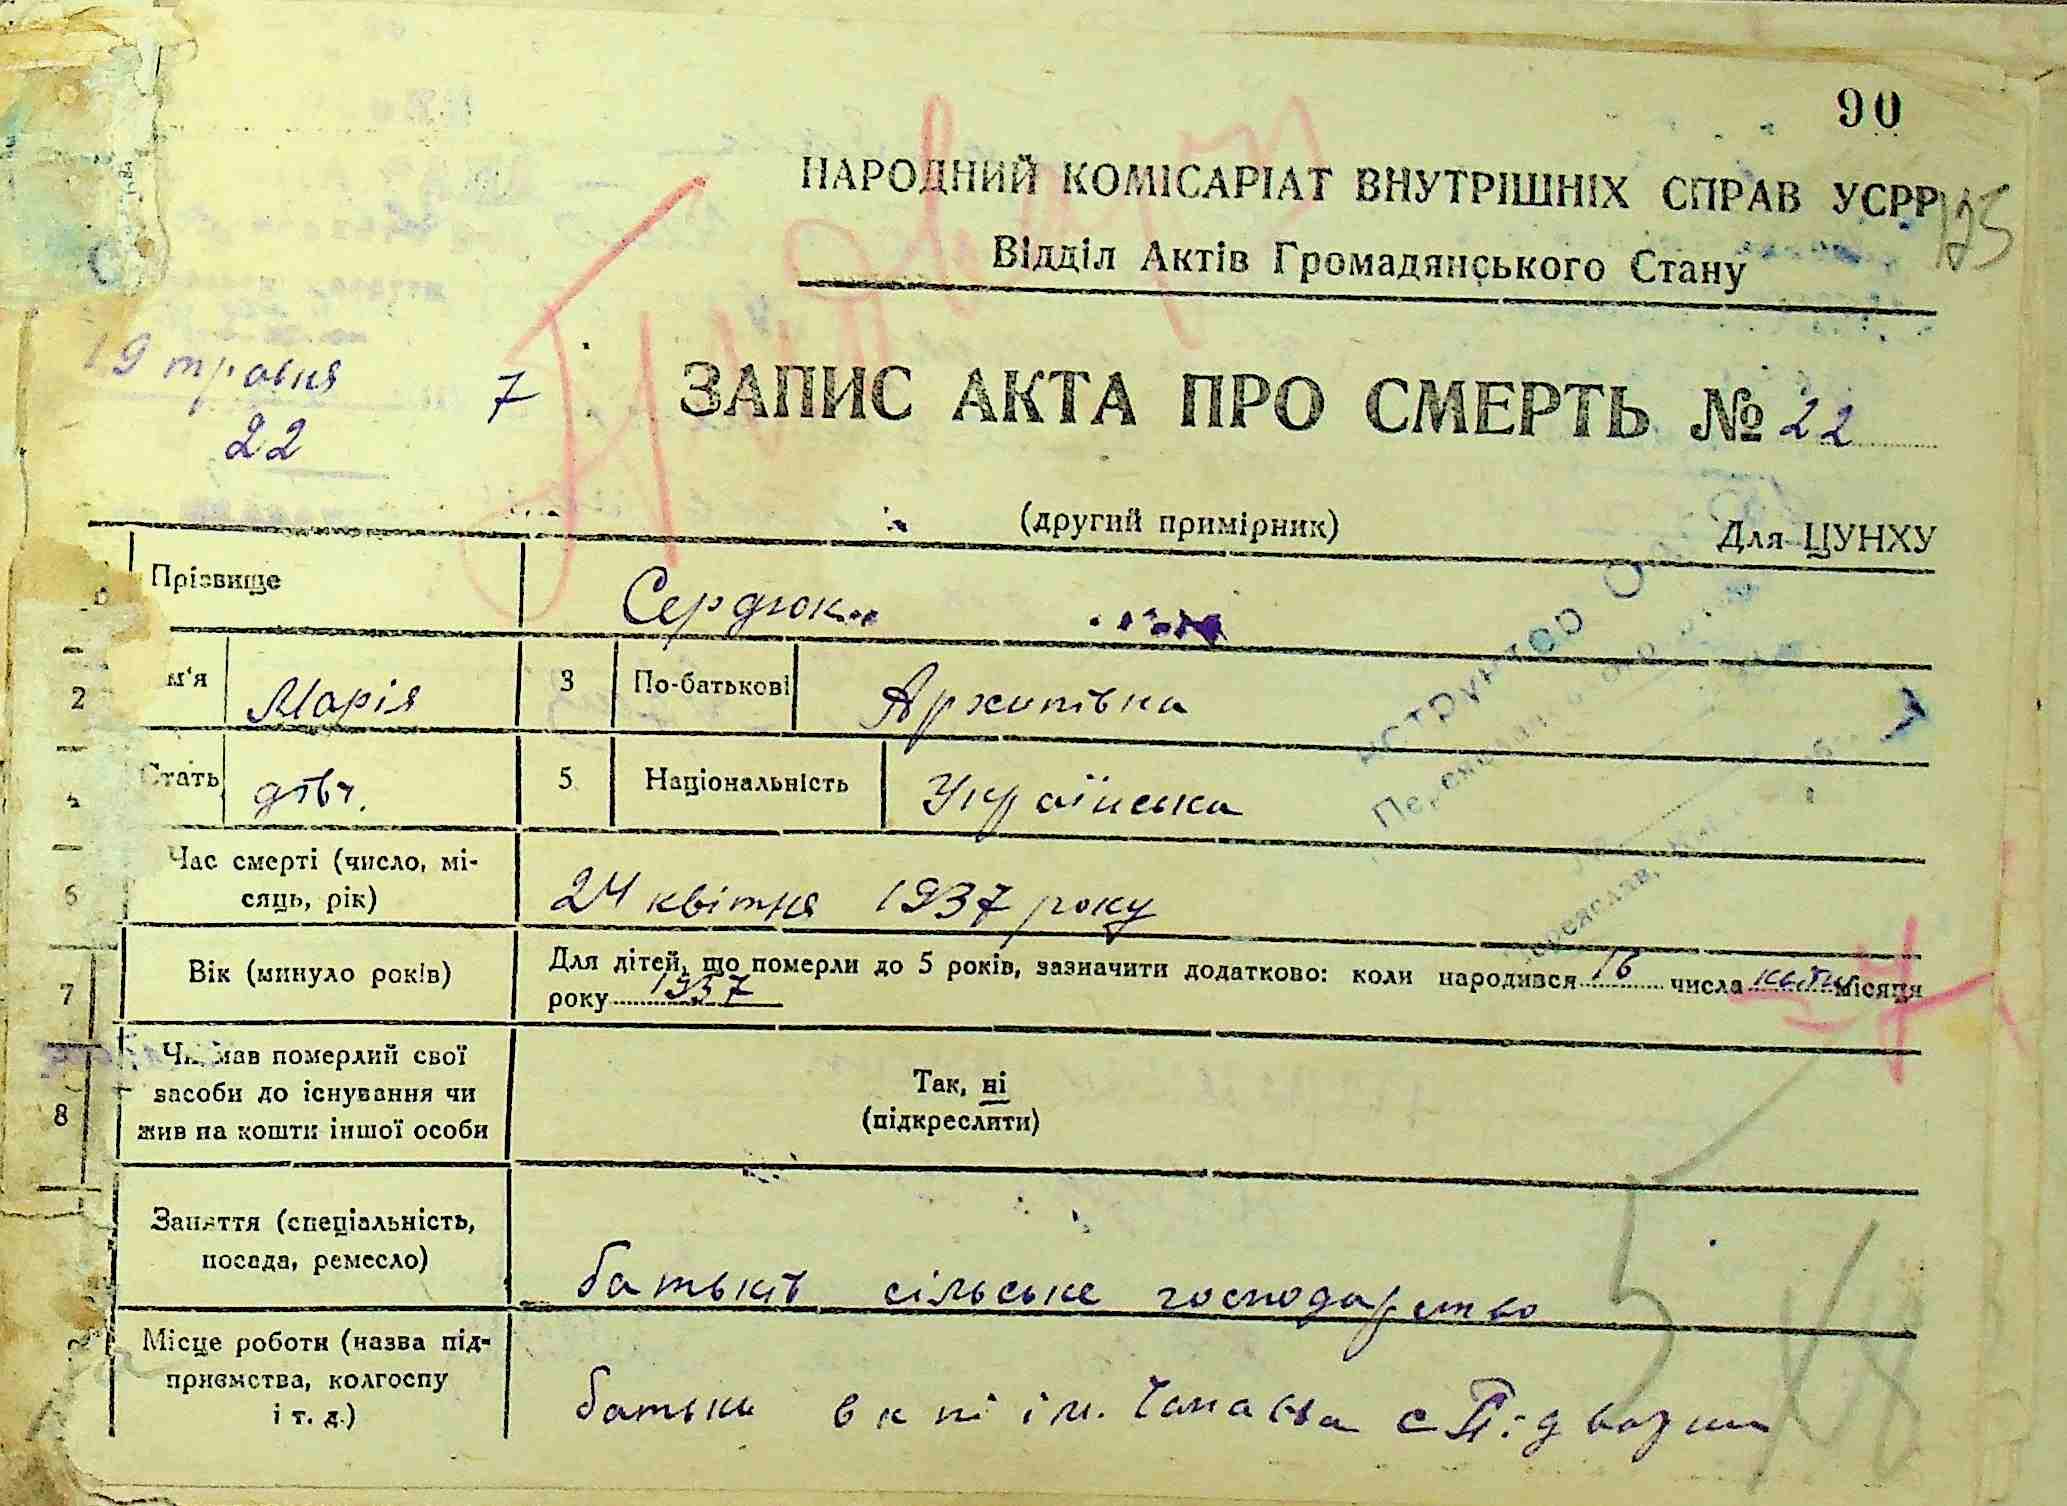 90
НАРОДНИЙ КОМІСАРІАТ ВНУТРІШНІХ СПРАВ УСРР
125
Відділ Актів Громадянського Стану
19 травня 7
22
ЗАПИС АКТА ПРО СМЕРТЬ № 22
(другий примірник) Для ЦУНХУ
Прізвище Сердюк
2 м'я Марія 3 По-батькові Архипівна
4 Стать дівч. 5 Національність Українська
6 Час смерті (число, мі-
сяць, рік) 24 квітня 1937 року
7 Вік (минуло років) Для дітей, що померли до 5 років, зазначити додатково: коли народився 16 числа квітн місяця
року 1937
8 Чи мав померлий свої
засоби до існування чи
жив на кошти іншої особи
Так, ні
(підкреслити)
Заняття (спеціальність,
посада, ремесло) батьків сільське господарство
Місце роботи (назва під-
приємства, колгоспу
і т. д.) батьки в к ім. Чапаєва с